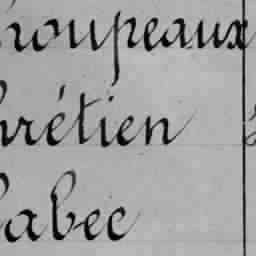 roupeaux
hrétien
abec